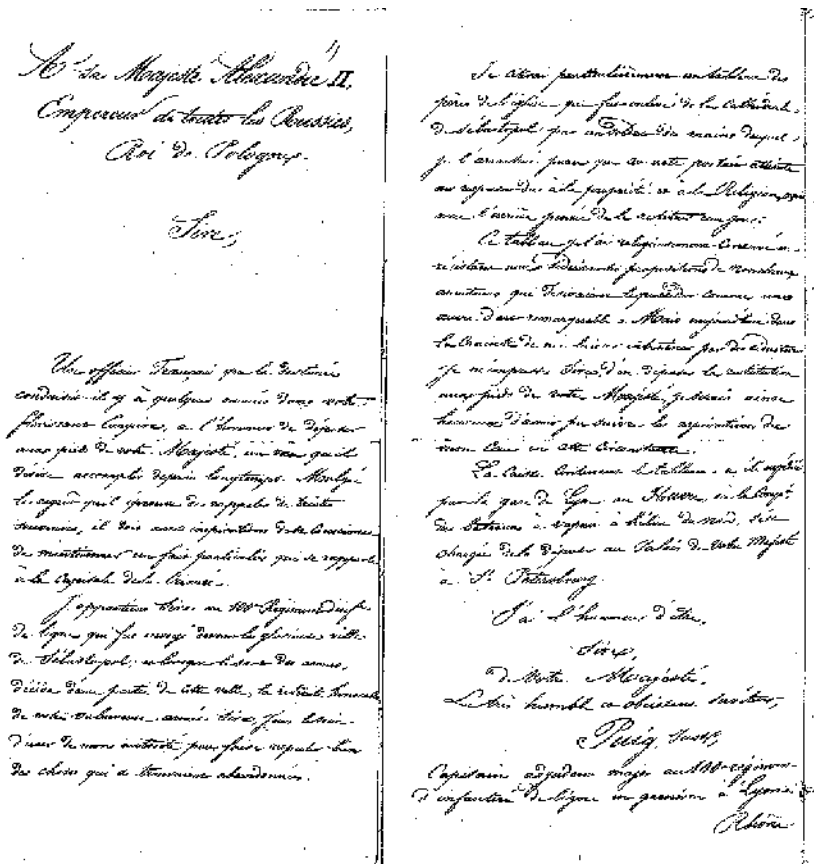 A Sa Majesté Alexandre II,
Empereur de toutes les Russies,
Roi de Pologne.
Sire,
Un officier Français que la destinée
conduisit il y a quelques années dans votre
florissant Empire, a l'honneur de déposer
aux pieds de votre Majesté, un vœu qu'il
désire accomplir depuis longtemps. Malgré
le regret qu'il éprouve de rappeler de tristes
souvenirs, il doit aux inspirations de sa conscience
de mentionner un fait particulier qui se rapporte
à la Capitale de la Crimée.
J'appartiens Sire au 100e Régiment d'inf.
de ligne qui fut engagé devant la glorieuse ville
de Sébastopol; et lorsque le sort des armes,
décida d'une partie de cette ville, la retraite honorable
de votre valeureuse armée Sire, j'eus le soin
d'user de mon autorité pour faire respecter bien
des choses qui se trouvaient abandonnées.
Je sauvai particulièrement un tableau des
pères de l'église qui fut enlevé de la Cathédrale
de Sébastopol par un soldat des mains duquel
je l'arrachai pour que ne fut portée atteinte
au respect dû à la propriété et à la Religion,
avec l'arrière pensée de le restituer un jour.
Ce tableau je l'ai religieusement conservé en
résistant aux propositions de nombreux
amateurs qui désiraient le posséder comme une
œuvre d'art remarquable. Mais aujourd'hui dans
la crainte de
je m'empresse Sire d'en déposer la restitution
aux pieds de votre Majesté, je serais ainsi
heureux d'avoir pu suivre les aspirations de
mon Cœur en cette Circonstance.
La Caisse Contenant le tableau a été expédiée
par la gare de Lyon au Havre, où la Comp.
des bateaux à vapeur à hélice du nord, est
chargée de le déposer au Palais de Votre Majesté
à St Pétersbourg.
J'ai l'honneur d'être,
Sire,
de Votre Majesté,
Le très humble et obéissant Serviteur,
Puig
Capitaine adjudant major au 100 régiment
d'infanterie de ligne en garnison à Lyon
Rhône